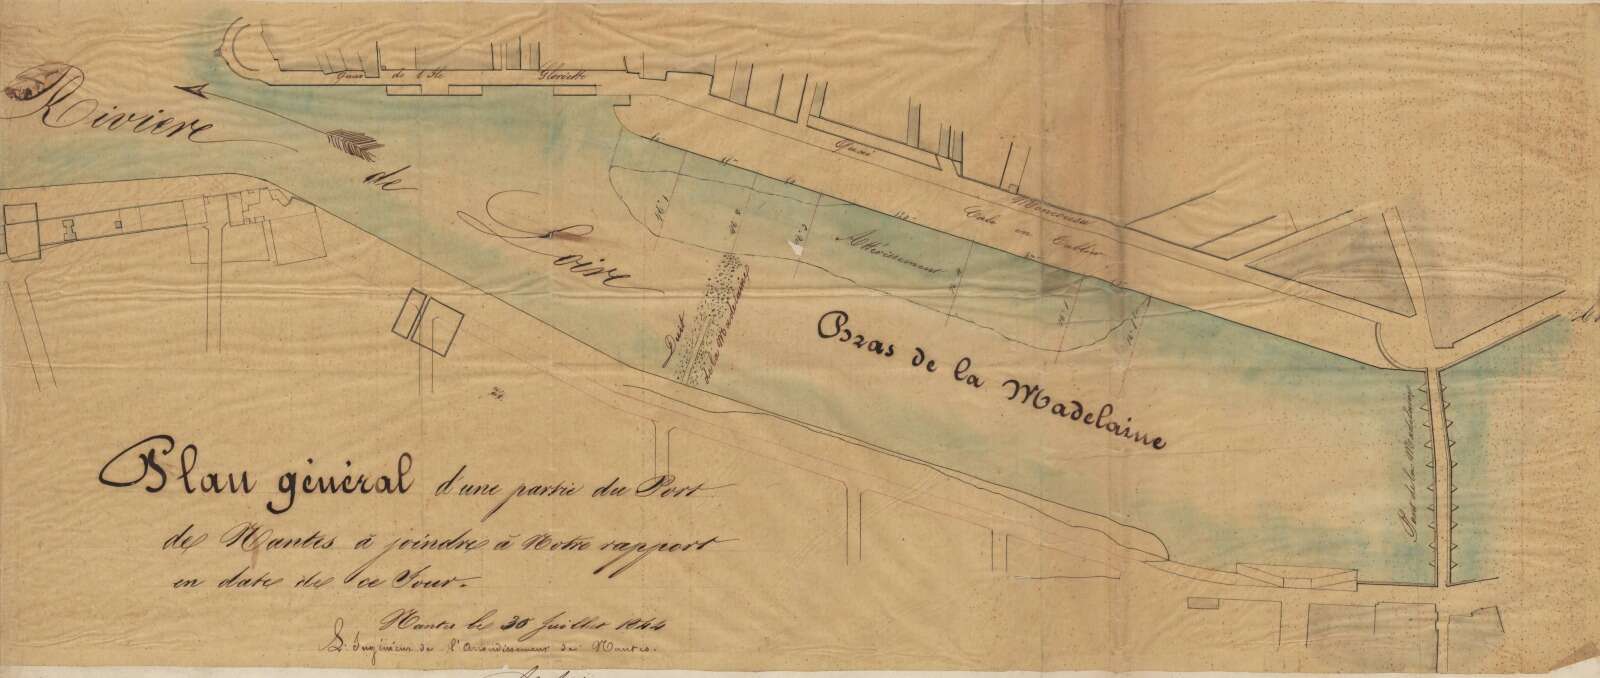 Quai de l'Ile Gloriette
Rivière
de
Loire
Quai Moncousu
Cale en Tablier
Attérissement
Duit
de la Madelaine
Bras de la Madelaine
Pont de la Madelaine
Plan général d'une partie du Port
de Nantes à joindre à Notre rapport
en date de ce Jour.
Nantes le 30 Juillet 1844
L'Ingénieur de l'Arrondissement de Nantes.